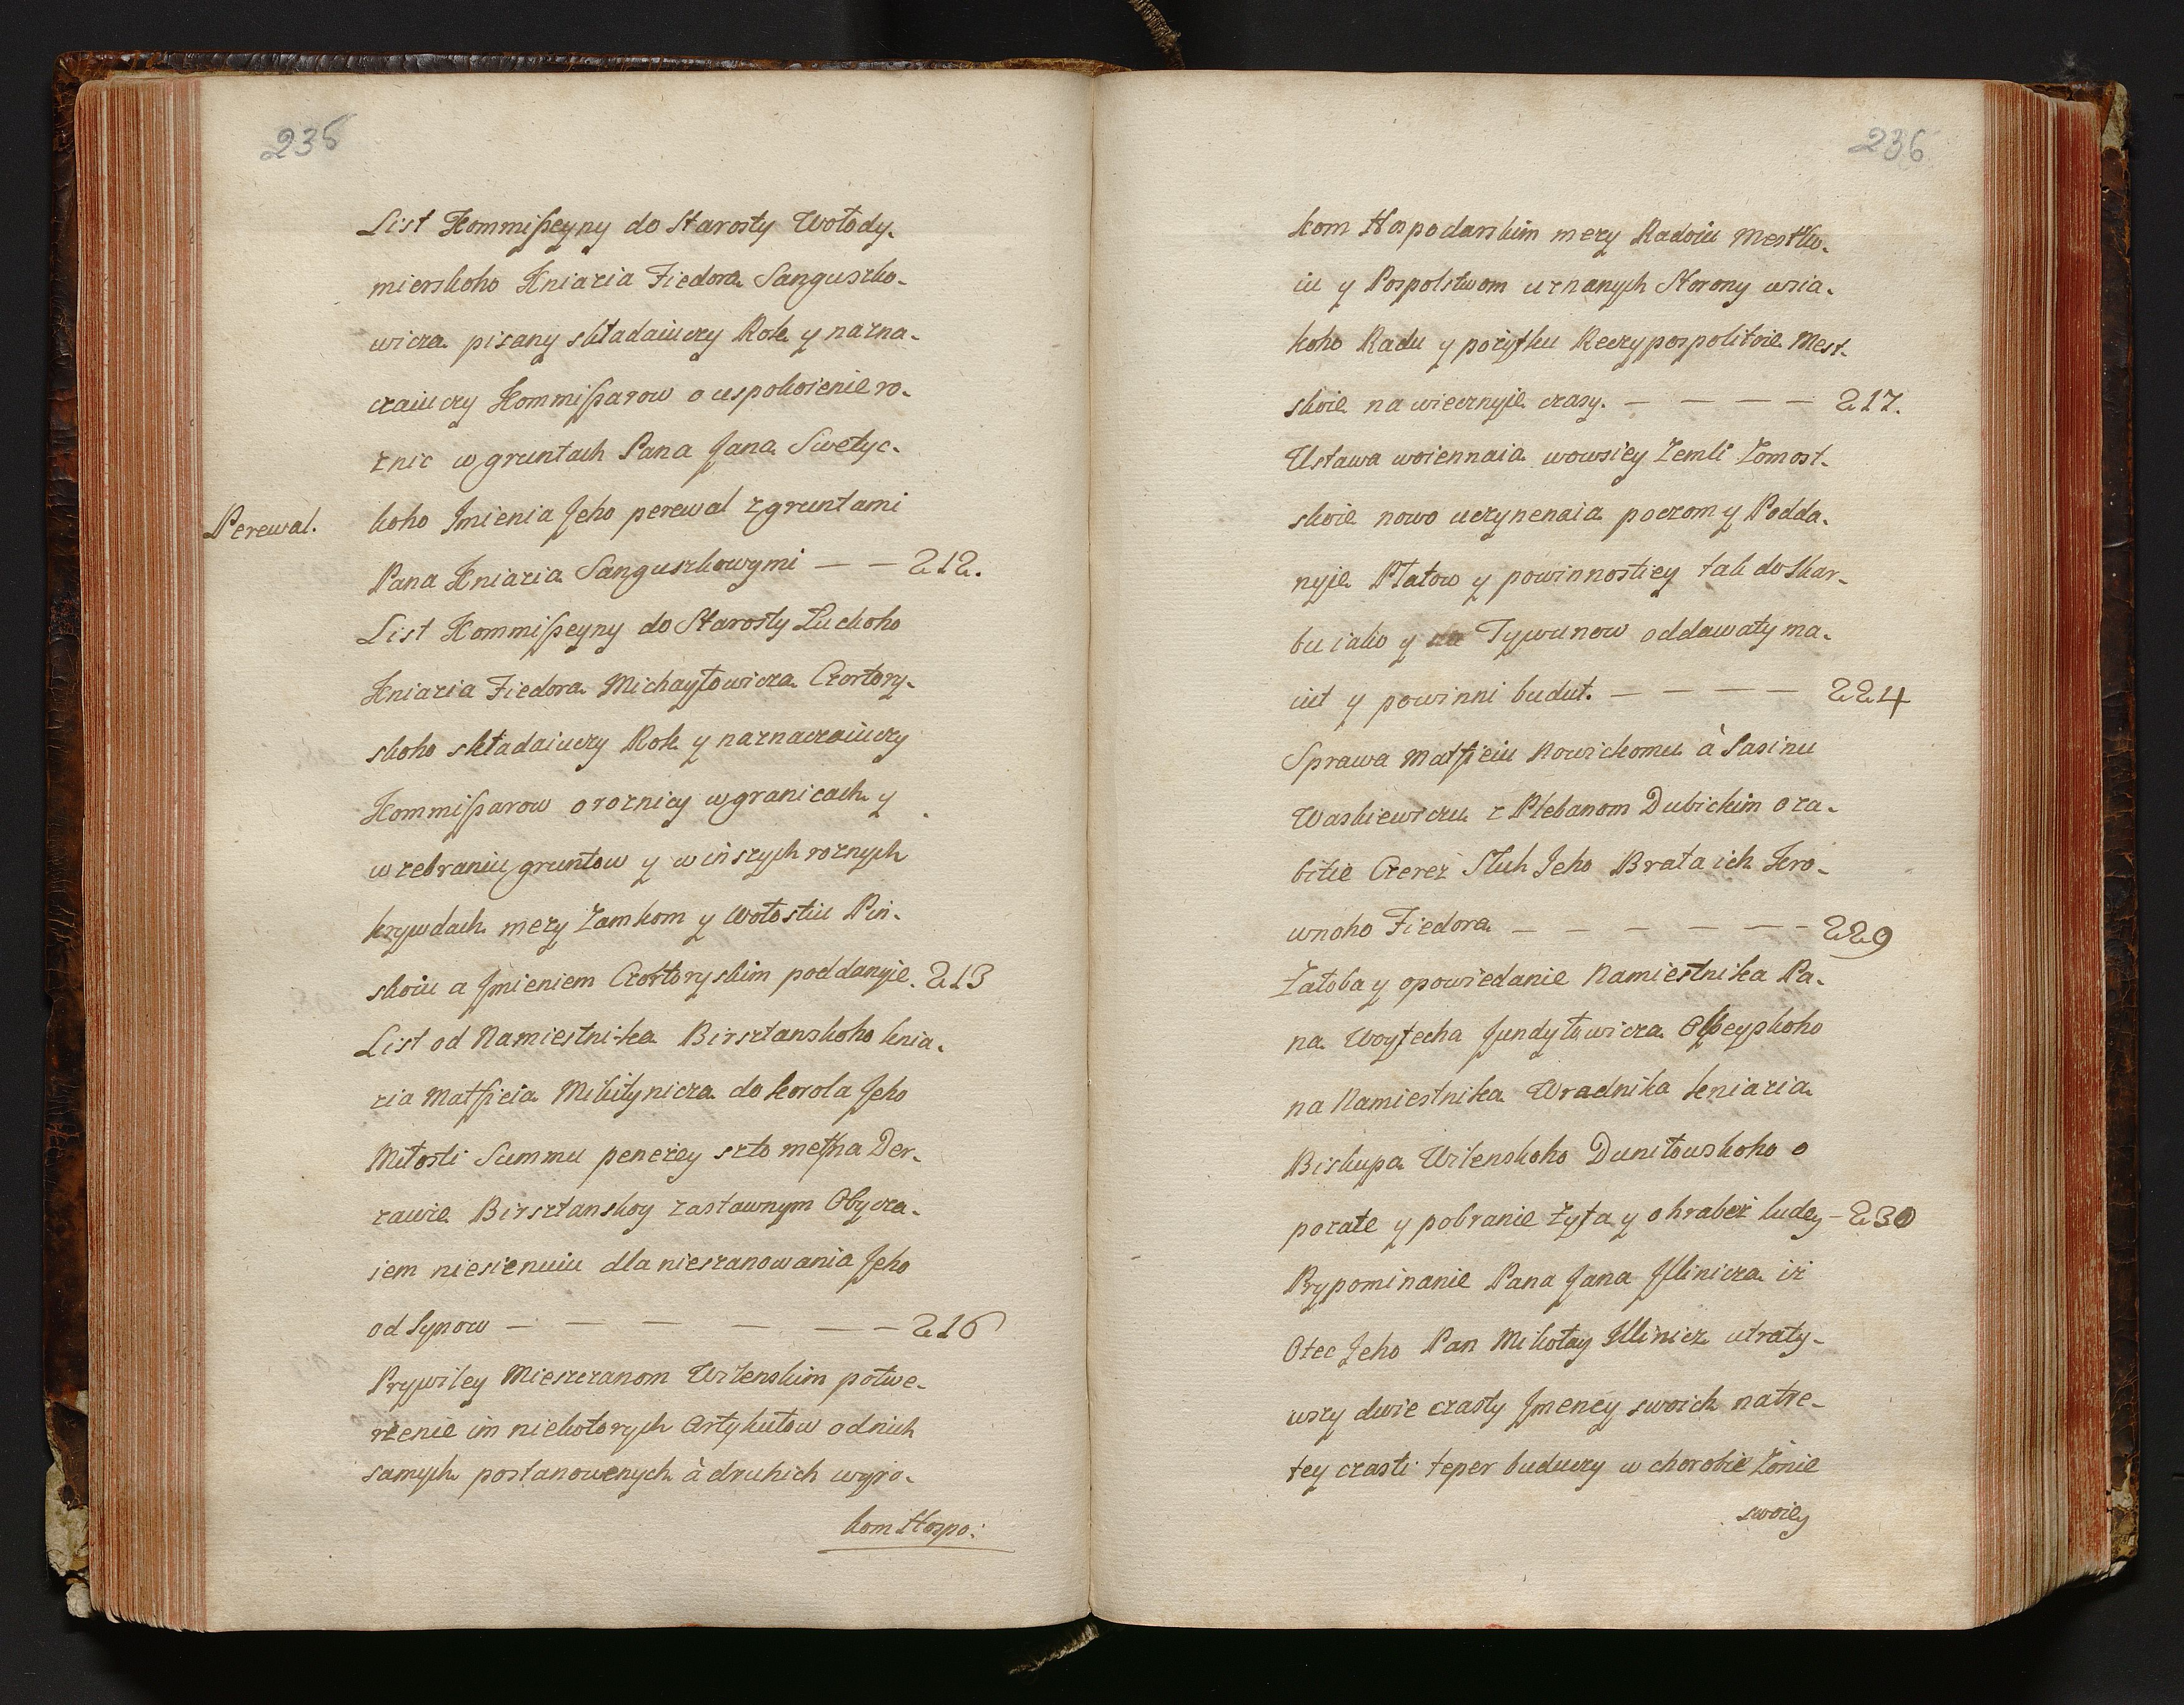 235
List Kommisseyny do Starosty Wołody-
mierskoho Kniazia Fiedora Sanguszko-
wicza pisany składaiuczy Rok y nazna-
czaiuczy Kommissarow o uspokoienie ro-
znic w gruntach Pana Jana Swetyc-
Perewal.
koho Imienia Jeho perewal z gruntami
Pana Kniazia Sanguszkowymi — — 212.
List Kommisseyny do Starosty Łuckoho
Kniazia Fiedora Michayłowicza Czortory-
skoho składaiuczy Rok y naznaczaiuczy
Kommissarow o roznicy w granicach y
w zebraniu gruntow y w inszych roznych
krywdach mezy Zamkom y Wołostiu Pin-
skoiu a Jmieniem Czortoryskim poddanyie. 213
List od Namiestnika Birsztanskoho knia-
zia Matfieia Mikitynicza do korola Jeho
Miłosti Summu penezey szto meł na Der-
zawie Birsztanskoy zastawnym Obycza-
iem niesienuiu dla nieszanowania Jeho
od Synow — — — — — — 216
Prywiley Mieszczanom Wilenskim potwe-
rzenie im niekotorych Artykułow od nich
samych postanowenych à druhich wyro-
kom Hospo:
236
kom Hospodarskim mezy Radoiu Mestko-
iu y Pospolstwom uznanych Storony wsia-
koho Radu y pożytku Reczypospolitoie Mest-
skoie na wiecznyie czasy. — — — — 217.
Ustawa woiennaia wowsiey Zemli Zomost-
skoie nowo uczynenaia poczom y Podda-
nyie Płatow y powinnostiey tak do Skar-
bu iako y Tywunow oddawaty ma-
iut y powinni budut. — — — — 224
Sprawa Matfieiu Nowickomu à Sasinu
Waskiewiczu z Plebanom Dubickim o za-
bitie Czerez Słuh Jeho Brata ich Kro-
wnoho Fiedora — — — — — — 229
Załoba y opowiedanie Namiestnika Pa-
na Woytecha Jundyłowicza
na Namiestnika Wradnika kniazia
Biskupa Wilenskoho Duniłowskoho o
pozate y pobranie żyta y o hrabeż ludey — 230
Prypominanie Pana Jana Jllinicza iż
Otec Jeho Pan Mikołay Jllinicz utraty-
wszy dwie czasty Jmeney swoich na tre-
tey czasti teper buduczy w chorobie Żonie
swoiey